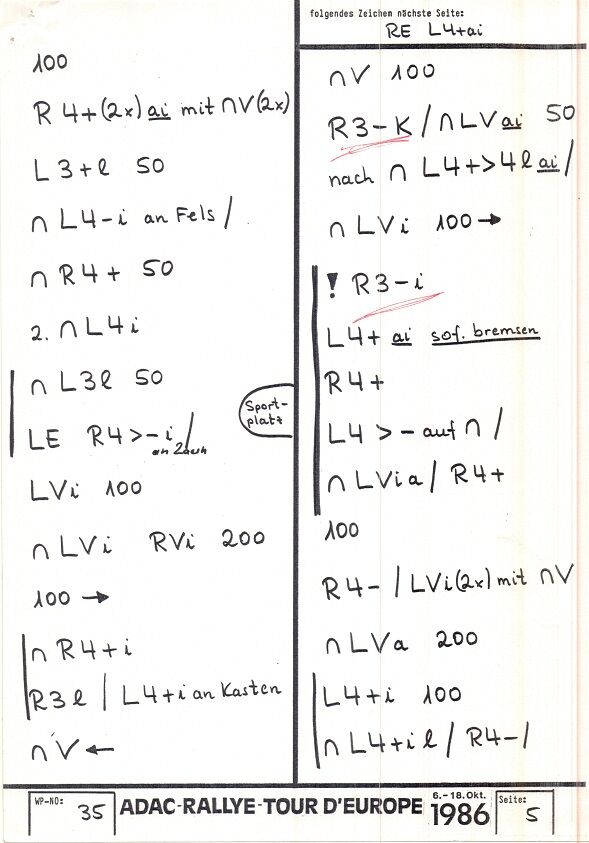 100
R 4+(2x) ai mit ∩V(2x)
L 3+l 50
∩ L4-i an Fels /
∩ R4+ 50
2. ∩ L4i
∩ L3l 50
LE R4>-i /
an Zaun
LVi 100
∩ LVi RVi 200
100 →
∩ R4+i
R3l / L4+i an Kasten
∩V ←
Sport-
platz
folgendes Zeichen nächste Seite:
RE L4+ai
∩V 100
R3-K / ∩LVai 50
nach ∩ L4+>4l ai /
∩ LVi 100 →
! R3-i
L4+ ai sof. bremsen
R4+
L4 >- auf ∩ /
∩ LVia / R4+
100
R4- / LVi(2x) mit ∩V
∩ LVa 200
L4+i 100
∩ L4+il / R4- /
WP-NO: 35
ADAC-RALLYE-TOUR D'EUROPE
6.-18.Okt.
1986
Seite: 5